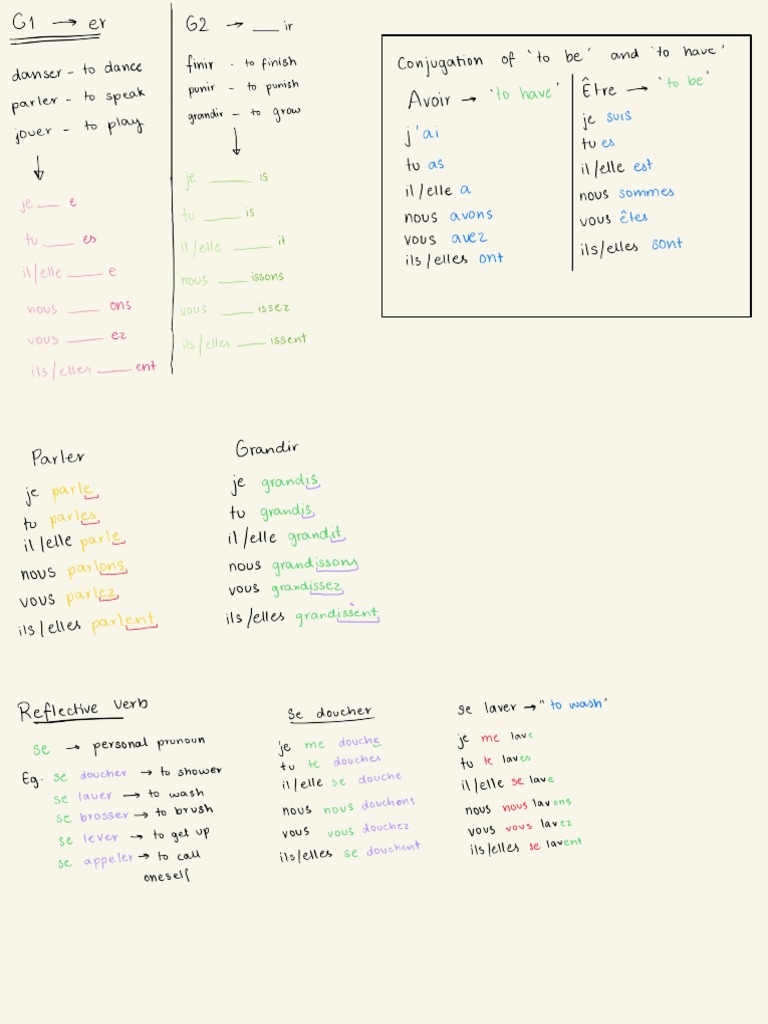 G1 → er
danser - to dance
parler - to speak
jouer - to play
je ___ e
tu ___ es
il/elle ___ e
nous ___ ons
vous ___ ez
ils/elles ___ ent
G2 → ___ ir
finir - to finish
punir - to punish
grandir - to grow
je ___ is
tu ___ is
il/elle ___ it
nous ___ issons
vous ___ issez
ils/elles ___ issent
Conjugation of 'to be' and 'to have'
Avoir → 'to have'
j'ai
tu as
il/elle a
nous avons
vous avez
ils/elles ont
Être → 'to be'
je suis
tu es
il/elle est
nous sommes
vous êtes
ils/elles sont
Parler
je parle
tu parles
il/elle parle
nous parlons
vous parlez
ils/elles parlent
Grandir
je grandis
tu grandis
il/elle grandit
nous grandissons
vous grandissez
ils/elles grandissent
Reflective verb
se → personal prunoun
Eg. se doucher → to shower
se laver → to wash
se brosser → to brush
se lever → to get up
se appeler → to call
oneself
se doucher
je me douche
tu te douches
il/elle se douche
nous nous douchons
vous vous douchez
ils/elles se douchent
se laver → "to wash"
je me lave
tu te laves
il/elle se lave
nous nous lavons
vous vous lavez
ils/elles se lavent